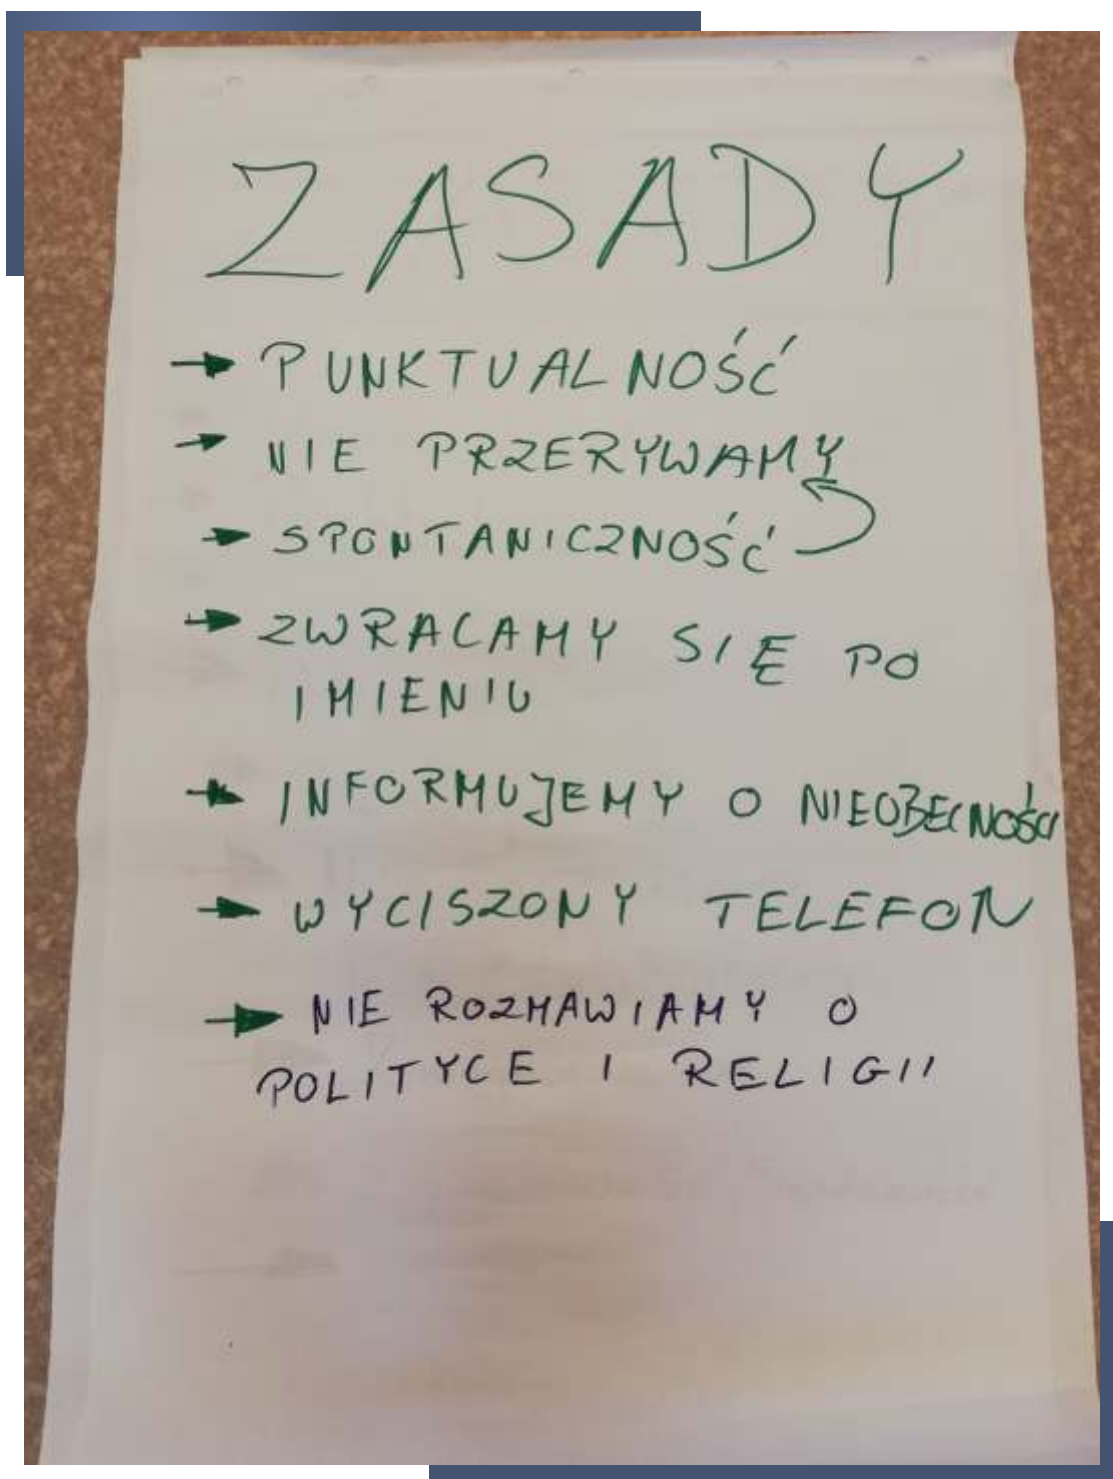 ZASADY
→ PUNKTUALNOŚĆ
→ NIE PRZERYWAMY
→ SPONTANICZNOŚĆ
→ ZWRACAMY SIĘ PO
IMIENIU
→ INFORMUJEMY O NIEOBECNOŚCI
→ WYCISZONY TELEFON
→ NIE ROZMAWIAMY O
POLITYCE I RELIGII